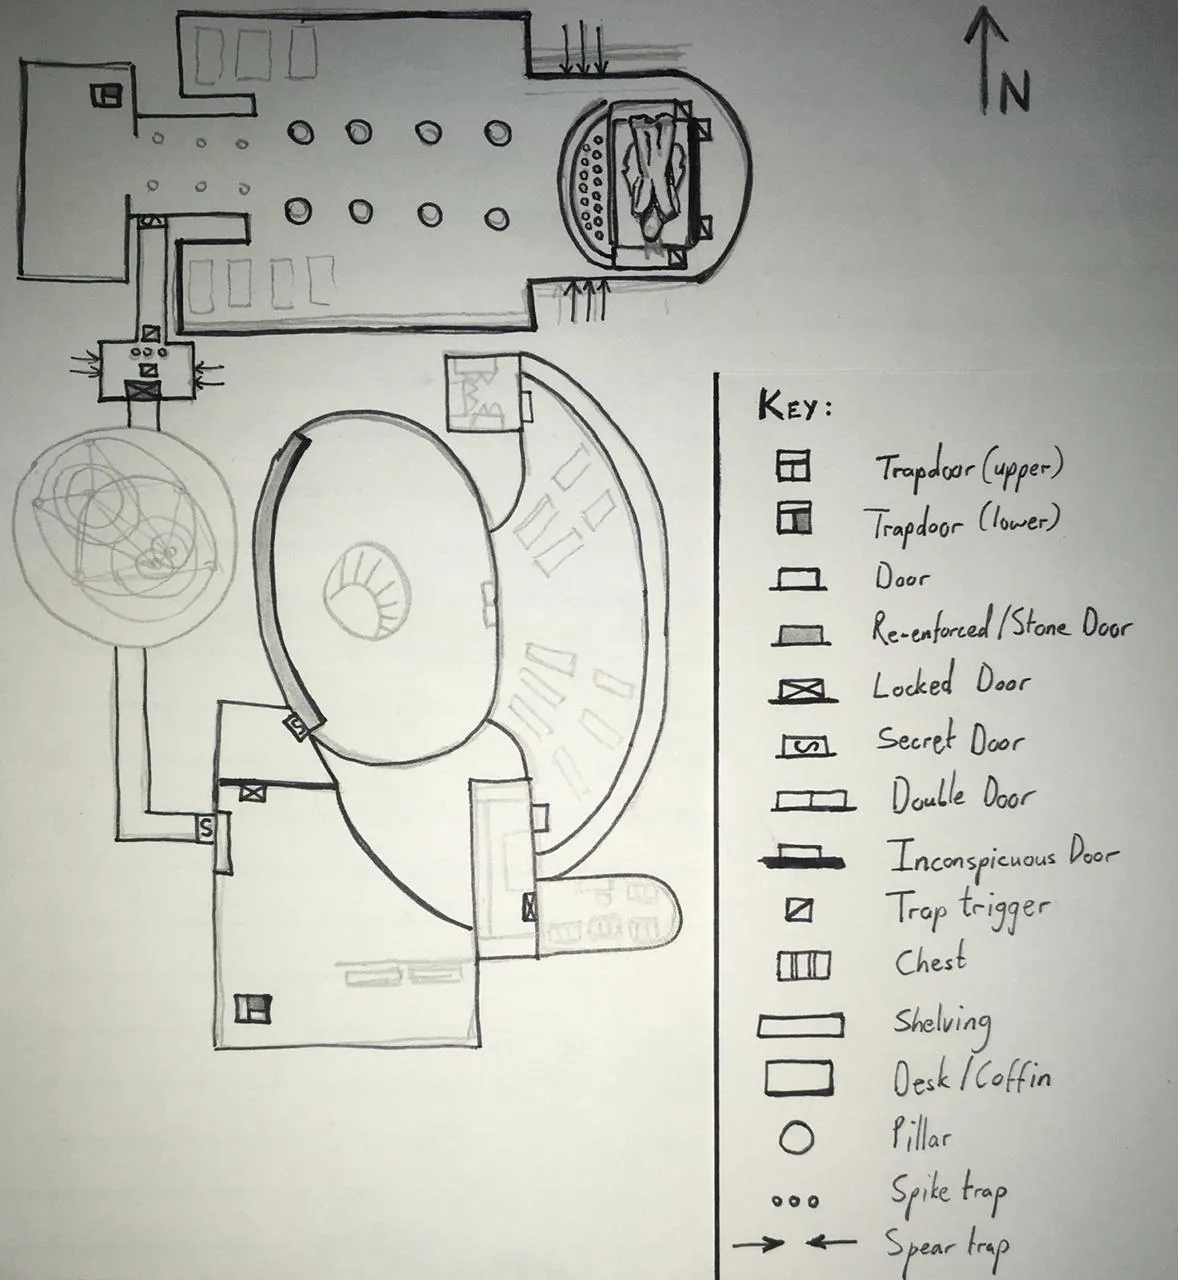 N
KEY:
Trapdoor (upper)
Trapdoor (lower)
Door
Re-enforced/Stone Door
Locked Door
S Secret Door
Double Door
Inconspicuous Door
Trap trigger
Chest
Shelving
Desk/Coffin
Pillar
Spike trap
Spear trap
S
S
S